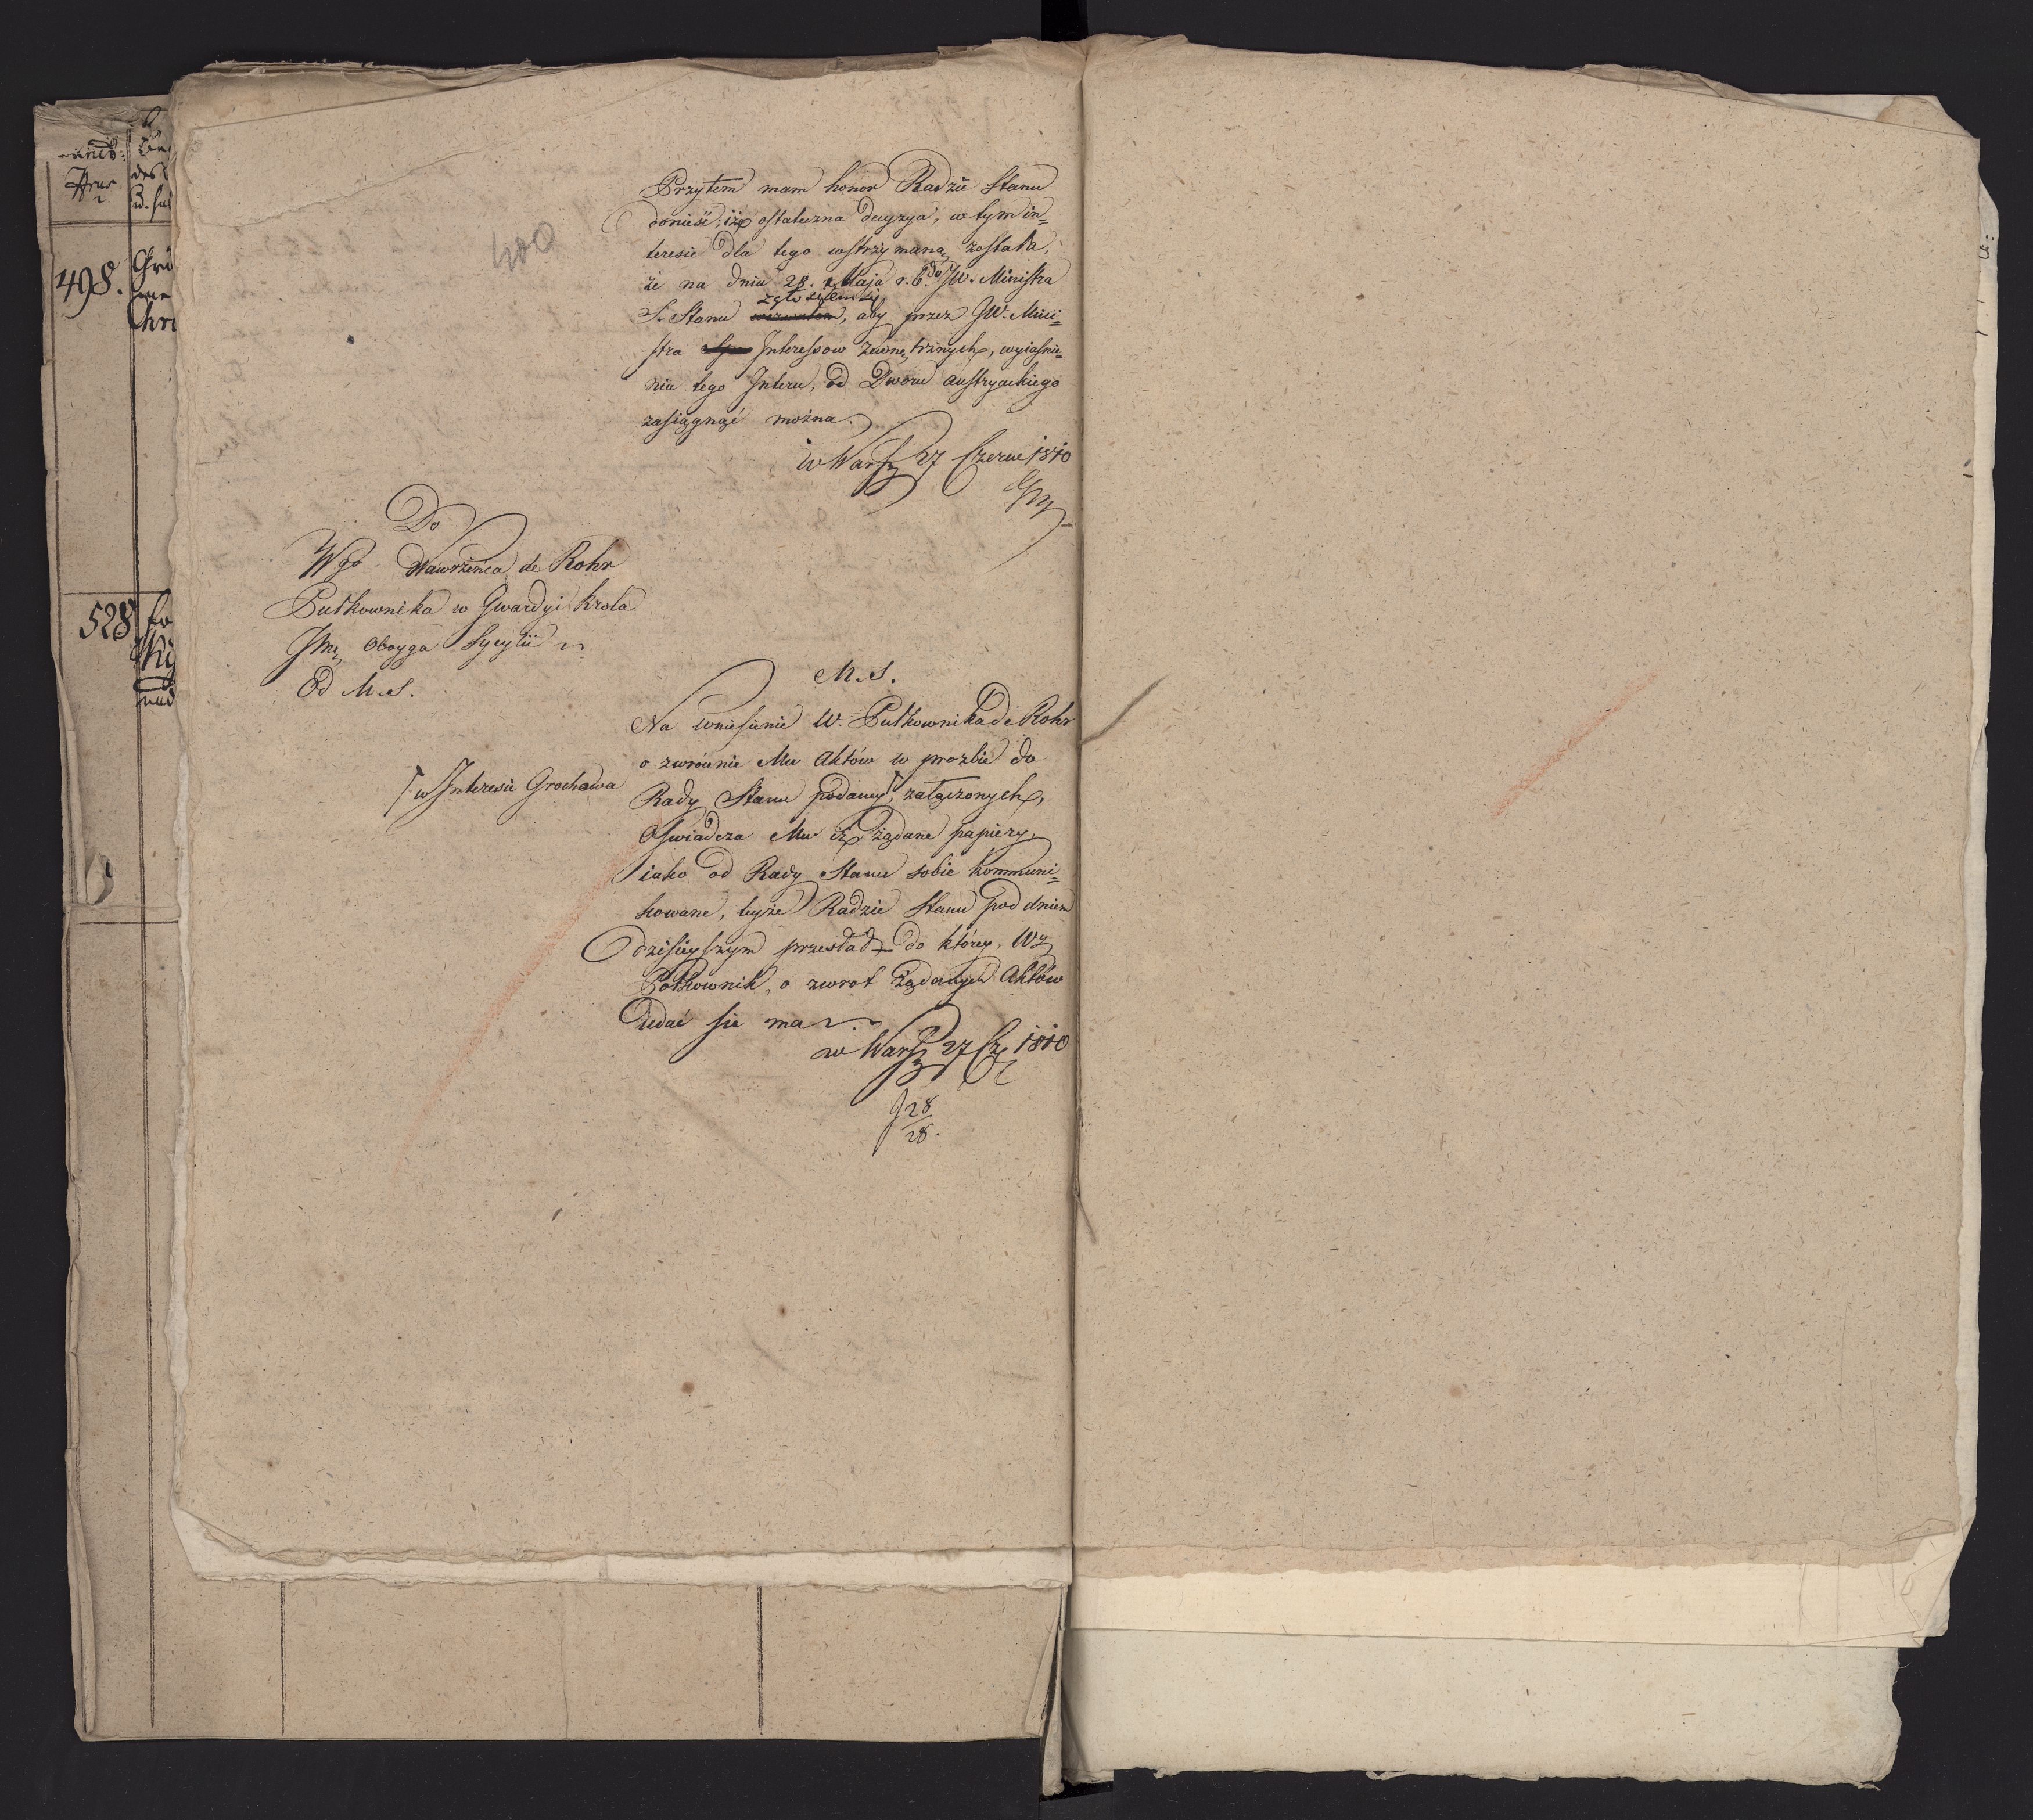 400
Przytem mam honor Radzie Stanu
donieść, iż ostateczna decyzya, w tym in=
teresie dla tego wstrzymaną została,
że na dniu 28. Maja r. b. do JW. Ministra
S. Stanu zgłosiłem się, aby przez JW. Mini=
stra Interessow Zewnętrznych, wyiaśnie=
nia tego Interu, od Dworu Austryackiego
zasiągnąć można.
w Warsz 27 Czerw 1810
Do
Wgo Wawrzeńca de Rohr
Pułkownika w Gwardyi Krola
Jmci Oboyga Sycylii
Od M. S.
M. S.
Na wniesienie W. Pułkownika de Rohr
o zwrócenie Mu Aktów w prozbie do
Rady Stanu podaney załączonych,
w Interesie Grochawa
Oswiadcza Mu iż żądane papiery,
iako od Rady Stanu sobie kommuni=
kowane, teyże Radzie Stanu pod dniem
dzisieyszym przesłał do którey, Wy
Połkownik, o zwrot żądanych Aktów
udać się ma
w Warsz 27 Cz 1810
28
28.
498.
528